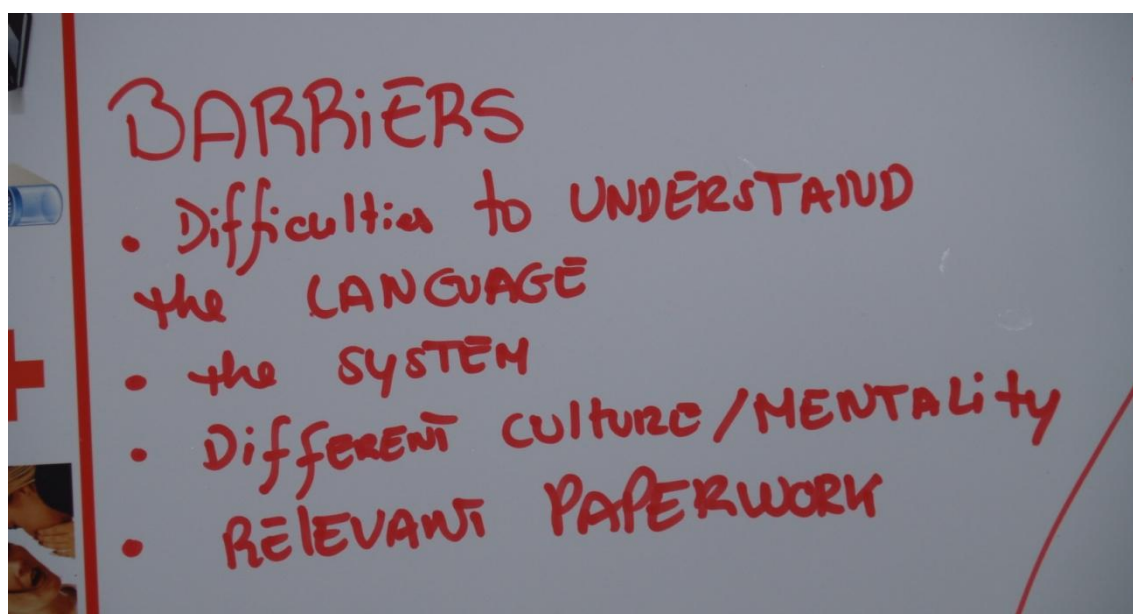 BARRiERS
• Difficulties to UNDERSTAND
the LANGUAGE
• the SYSTEM
• DiffERENT CULTURE/MENTALity
• RELEVANT PAPERWORK